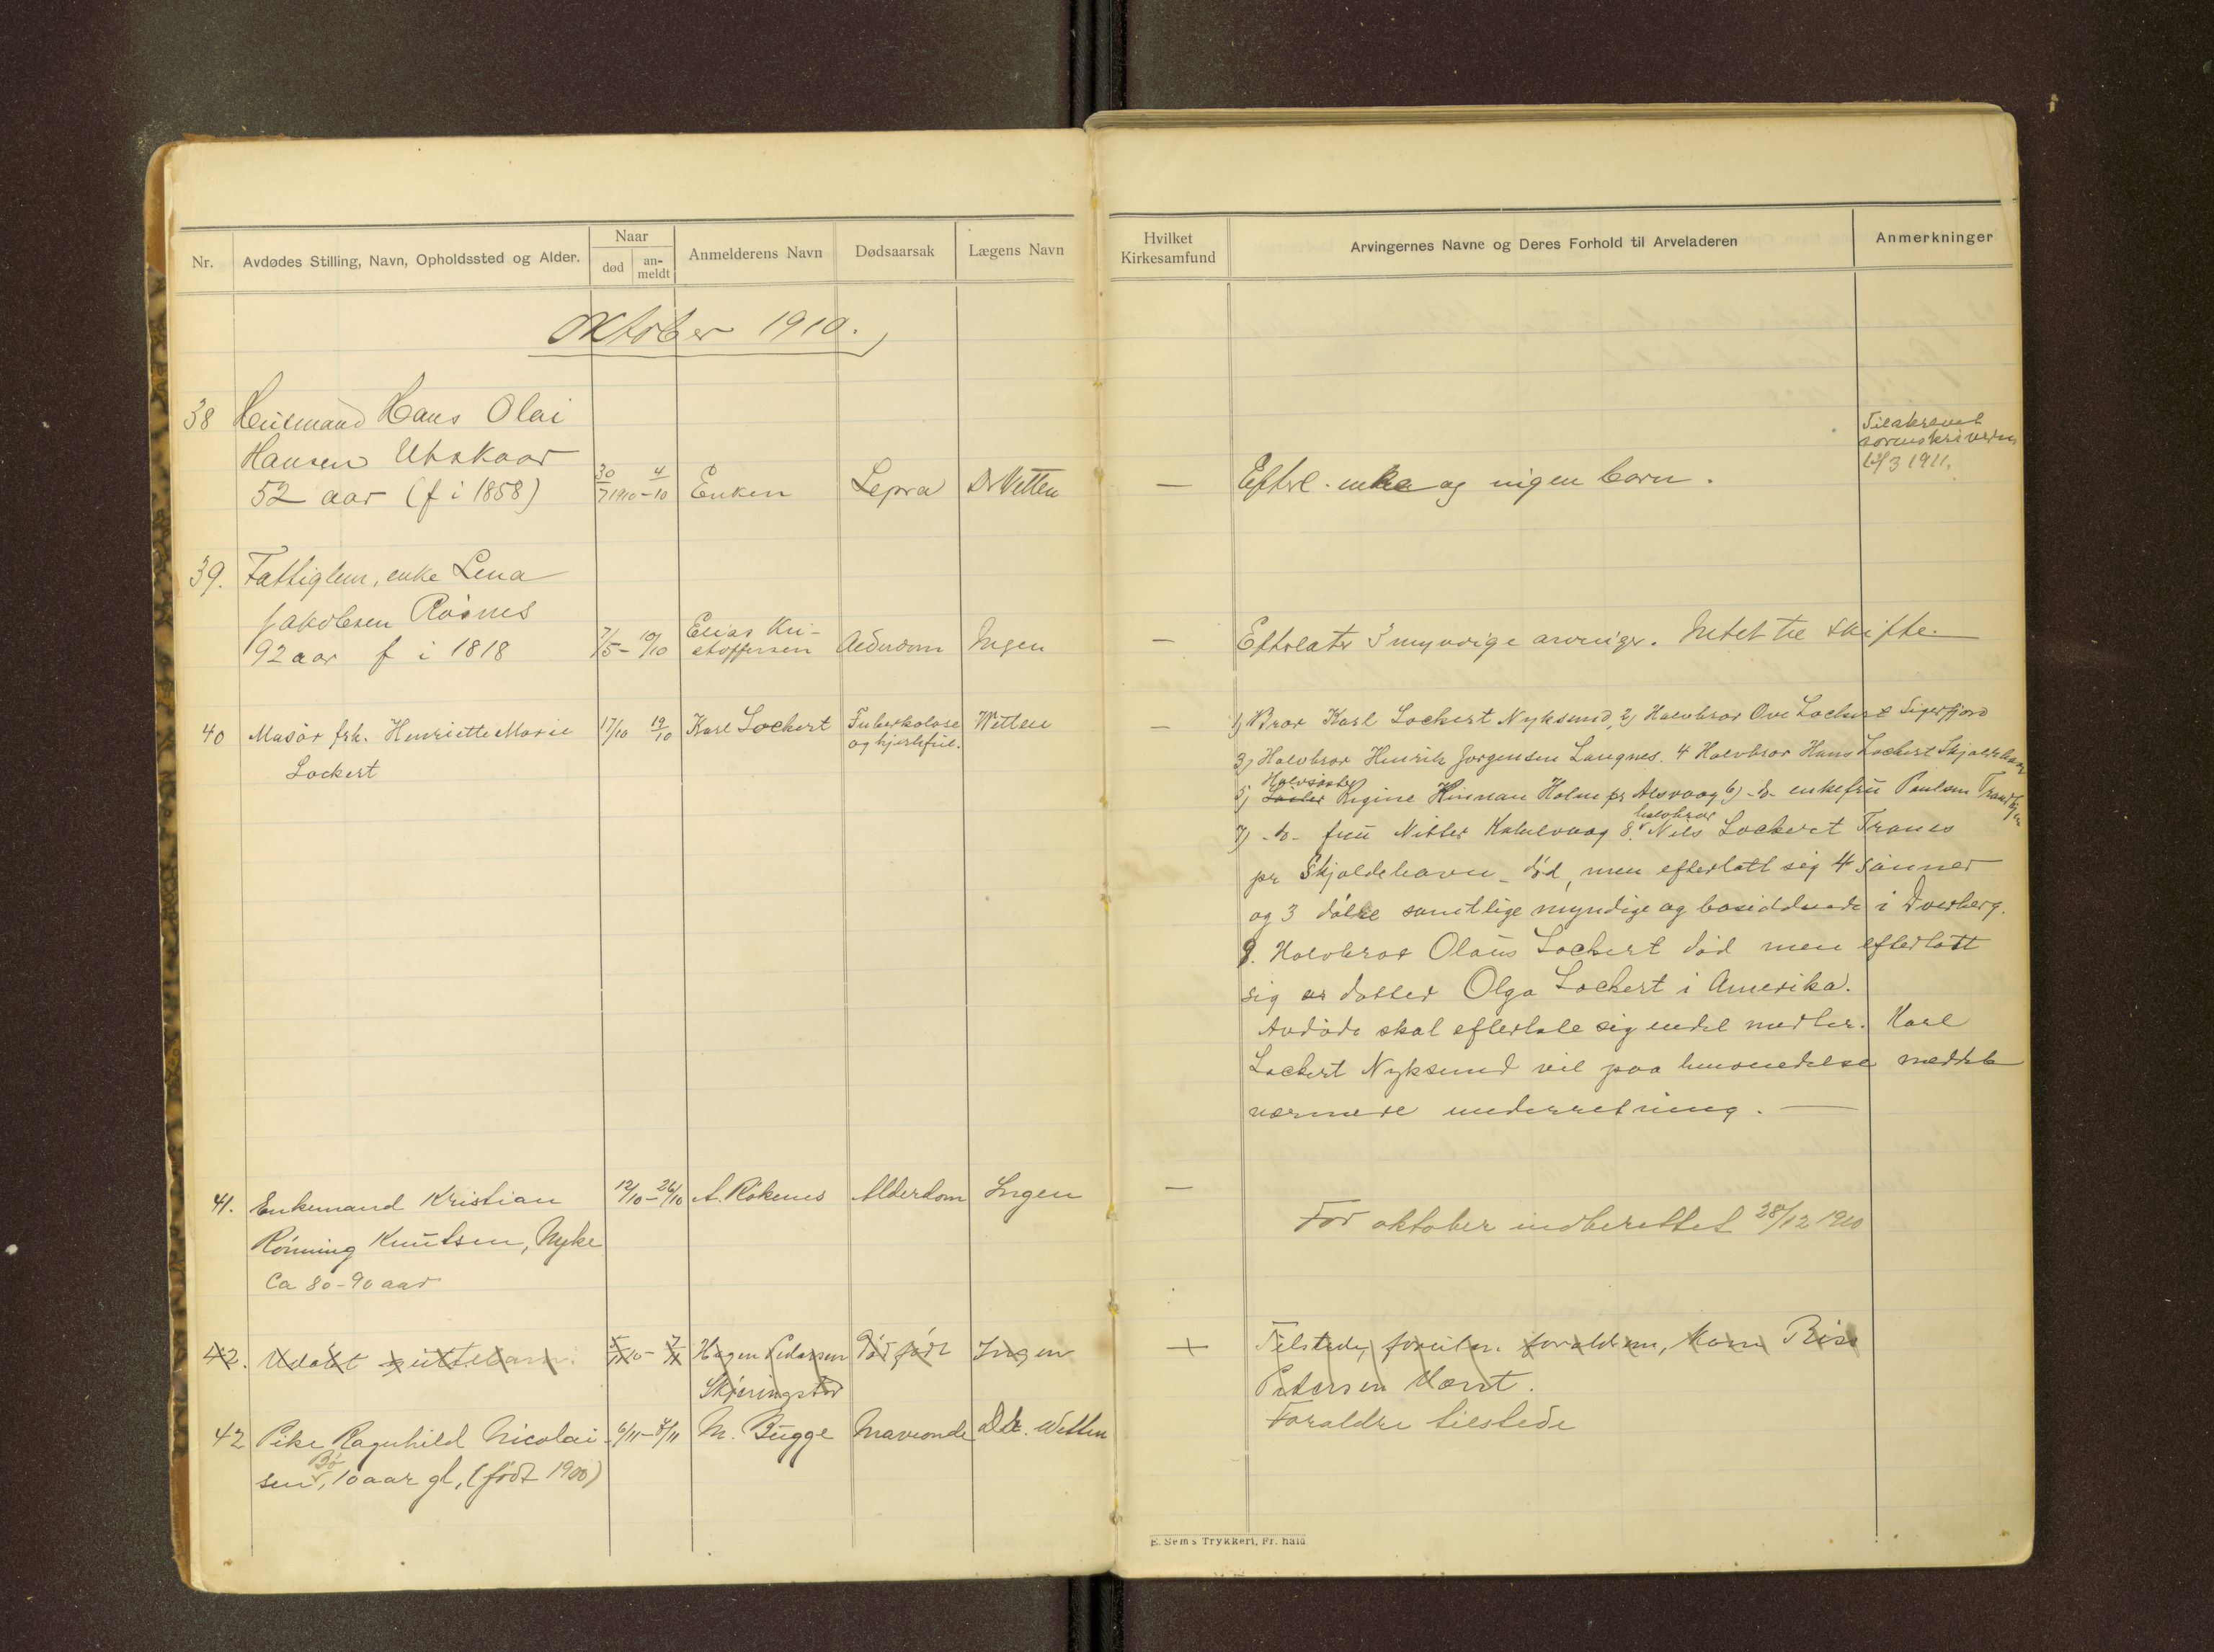 Nr.
Avdødes Stilling, Navn, Opholdssted og Alder.
Naar
død
an-
meldt
Anmelderens Navn
Dødsaarsak
Lægens Navn
Hvilket
Kirkesamfund
Arvingernes Navne og Deres Forhold til Arveladeren
Anmerkninger
Oktober 1910.
38 Hans Olai
Hansen Utskaar
52 aar (f i 1858) 30/7 1910 - 4/10 Enken Lepra Dr Wetten — Efterl. enke og ingen barn.
Tilskrevet
sorenskriveren
13/3 1911.
39. Fattiglem, enke Lena
Jakobsen Røsnes
92 aar f i 1818 7/5 - 10/10 Elias Kri-
stoffersen Alderdom Ingen — Efterlater 3 myndige arvinger. Intet til skifte.
40 Masør frk. Henriette Marie 17/10 19/10 Karl Lockert Tuberkolose Wetten —
og hjertefeil.
Lockert
1) Bror Karl Lockert Nyksund, 2) Halvbror Ove Lockert Sigerfjord
3) Halvbror Henrik Jørgensen Langnes. 4 Halvbror Hans Lockert
Halvsøster
5) Søster Regine Hinnan Holm pr Alsvaag 6) -do- enkefru Paulsen
halvbror
7) -do- fru 8. Nils Lockert Tranes
pr Skjoldehavn - død, men efterlatt sig 4 sønner
og 3 døtre samtlige myndige og bosiddende i Dverberg.
9. Halvbror Olaus Lockert død men efterlatt
sig datter Olga Lockert i Amerika.
Avdøde skal efterlate sig endel midler. Karl
Lockert Nyksund vil paa henvendelse meddele
nærmere underretning. —
41. Enkemand Kristian 12/10 - 26/10 A. Røkenes Alderdom Ingen —
Rønning Knutsen, Nyke
Ca 80-90 aar
For oktober indberettet 28/12 1910
42. Udøbt guttebarn. 5/11 10 - 7/11 Hagen Pedersen Død født Ingen —
Skjæringstad
Tilstede, foreldr. foreldren,
Pedersen
42 Pike Ragnhild Nicolai- 6/11 - 7/11 M. Bugge Mavonde Dr. Wetten
Bø
sen, 10 aar gl, (født 1900)
Forældre tilstede
E. Sem's Trykkeri, Fr. hald